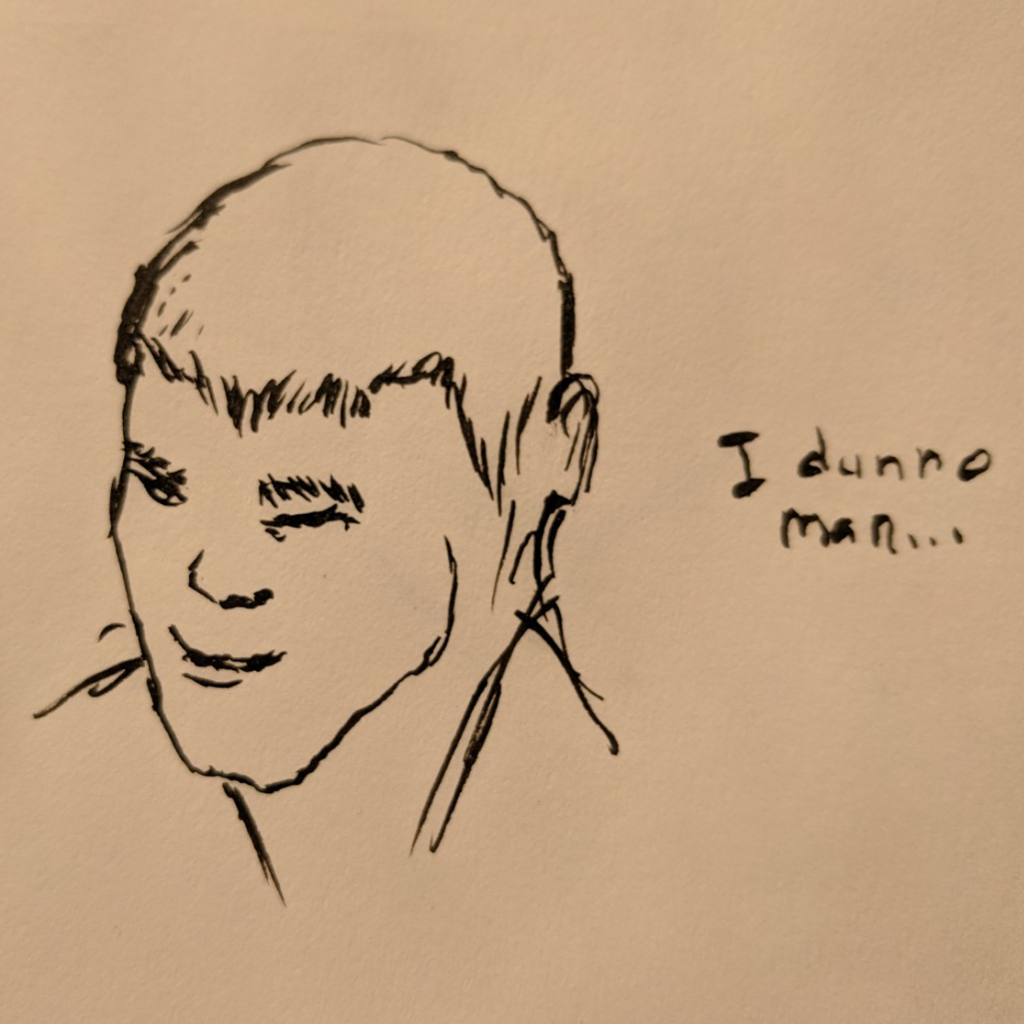 I dunno
man...